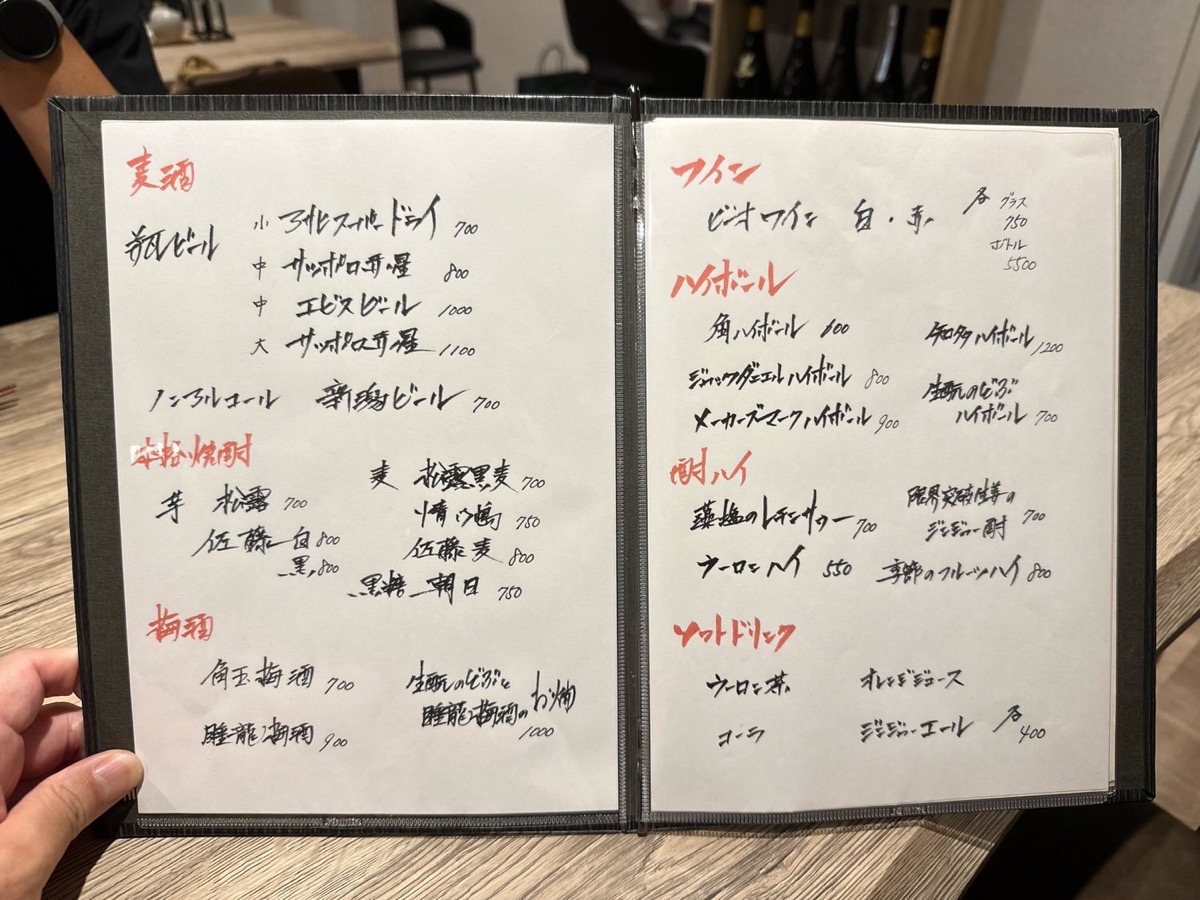 麦酒
瓶ビール 小 アサヒスーパードライ 700
中 サッポロ赤星 800
中 エビスビール 1000
大 サッポロ赤星 1100
ノンアルコール 新潟ビール 700
本格焼酎
芋 松露 700
佐藤 白 800
黒 800
麦 松露黒麦 700
情け嶋 750
佐藤 麦 800
黒糖 朝日 750
梅酒
角玉梅酒 700
睡龍梅酒 900
生酛のどぶと
睡龍梅酒の
1000
ワイン
ビオワイン 白・赤 各 グラス
750
ボトル
5500
ハイボール
角ハイボール 600
知多ハイボール 1200
ジャックダニエルハイボール 800
生酛のどぶ
ハイボール 700
メーカーズマークハイボール 900
酎ハイ
藻塩のレモンサワー 700
限界突破生姜の
ジンジャー酎 700
ウーロンハイ 550
季節のフルーツハイ 800
ソフトドリンク
ウーロン茶
オレンジジュース
コーラ
ジンジャーエール 各
400